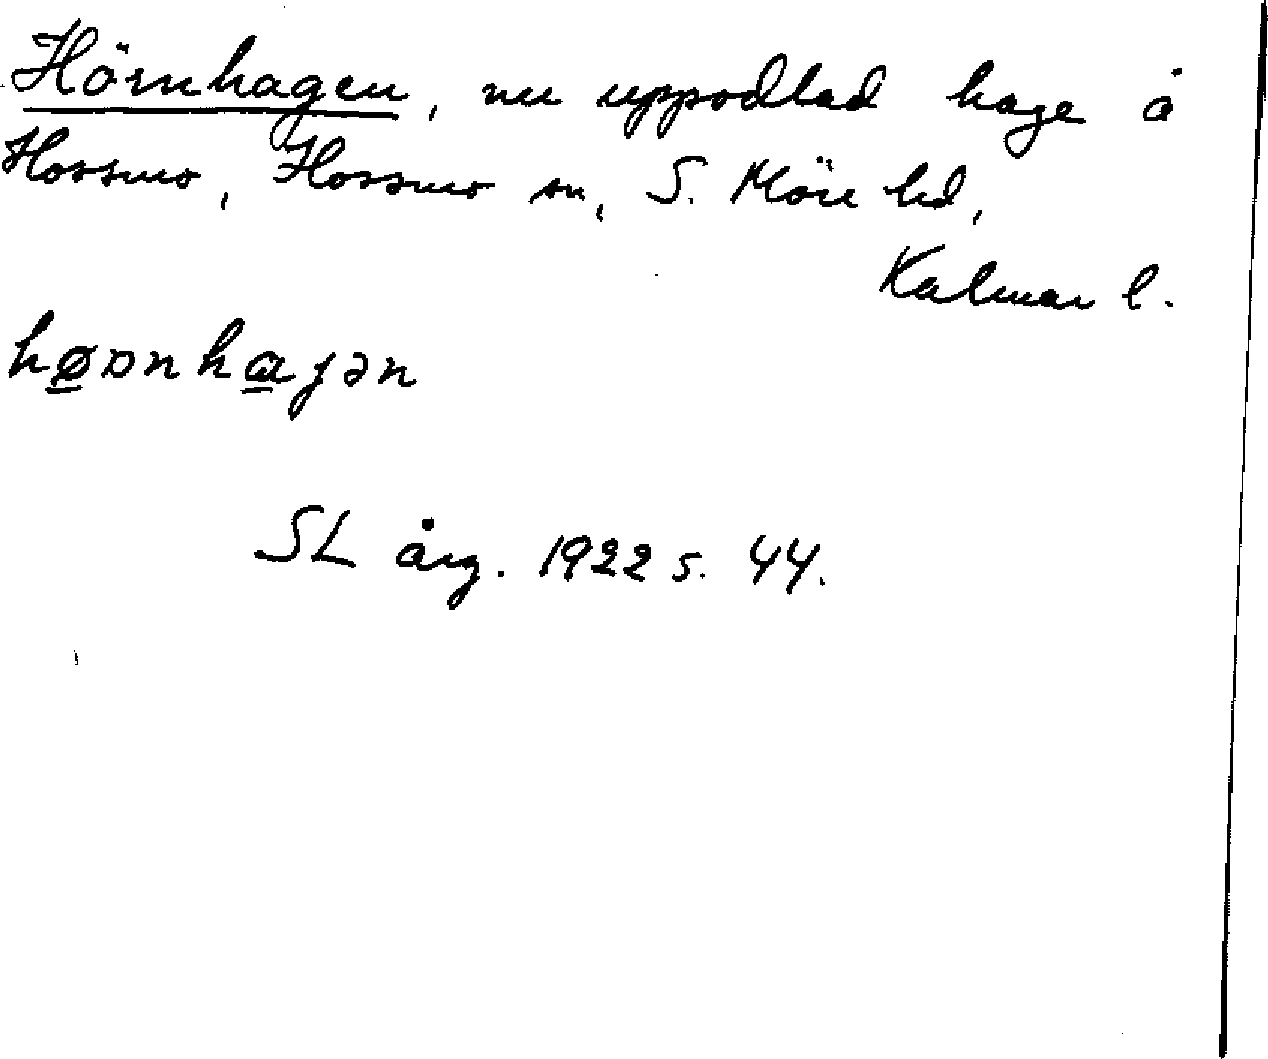 Hörnhagen, nu uppodlad hage å
Hossmo, Hossmo sn, S. Möre hd,
Kalmar l.
hø̲ɒnhɑ̲ɡən
SL årg. 1922 s. 44.